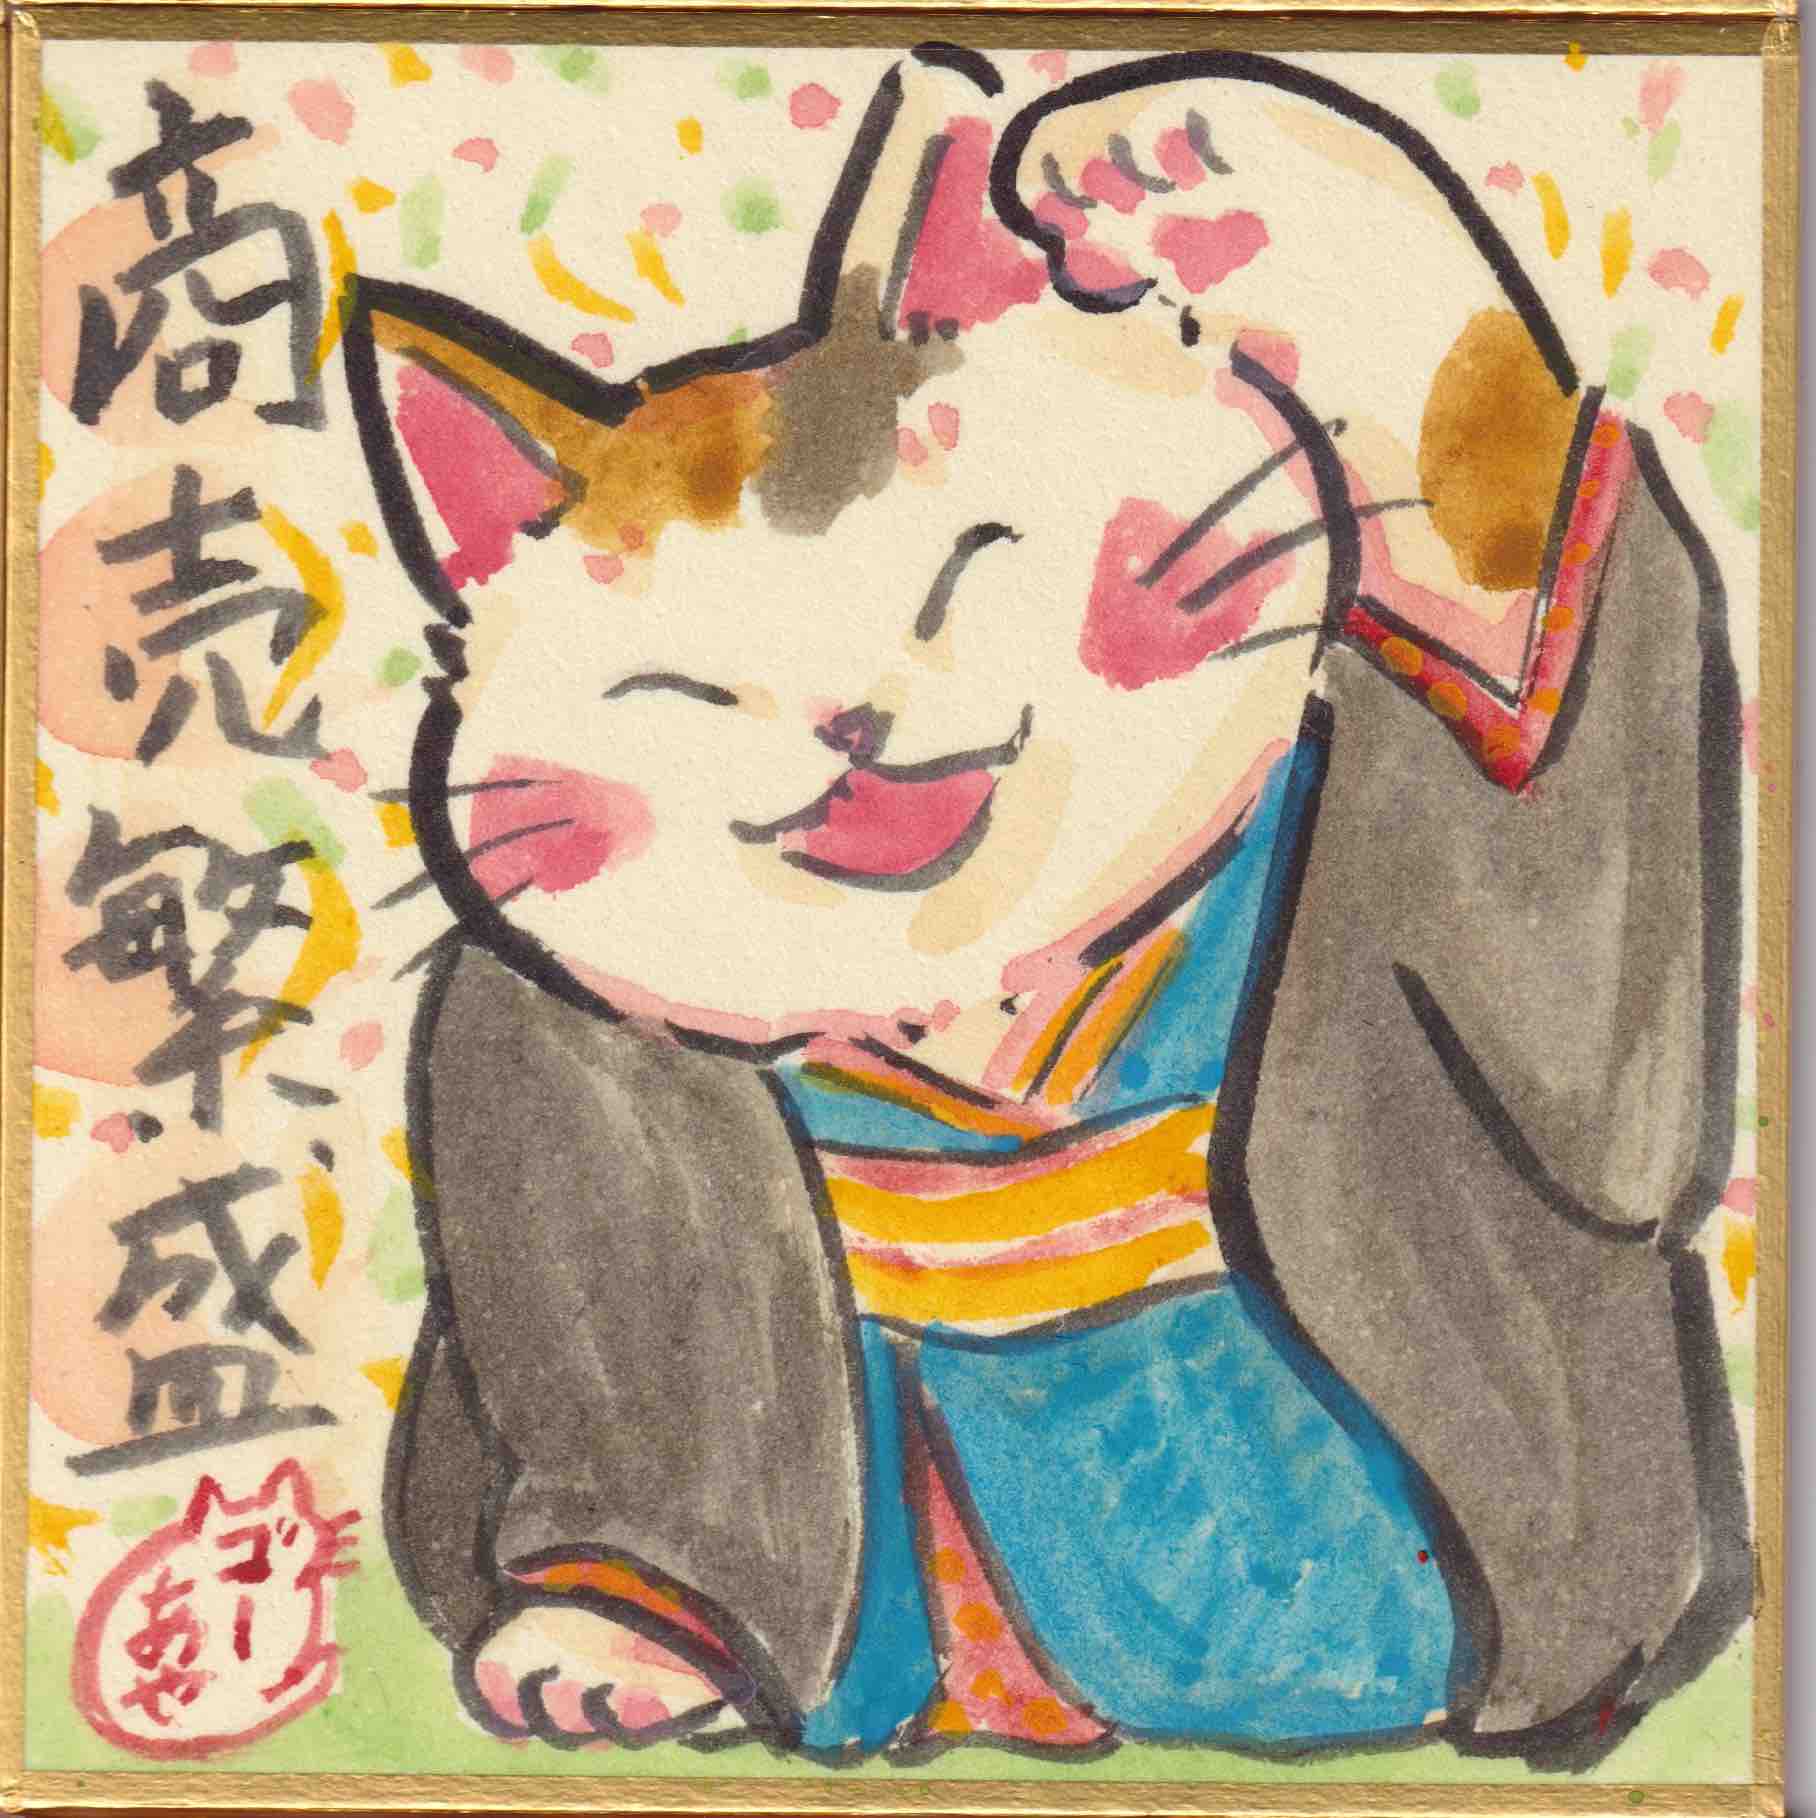 商売繁盛
ゴッー
あや